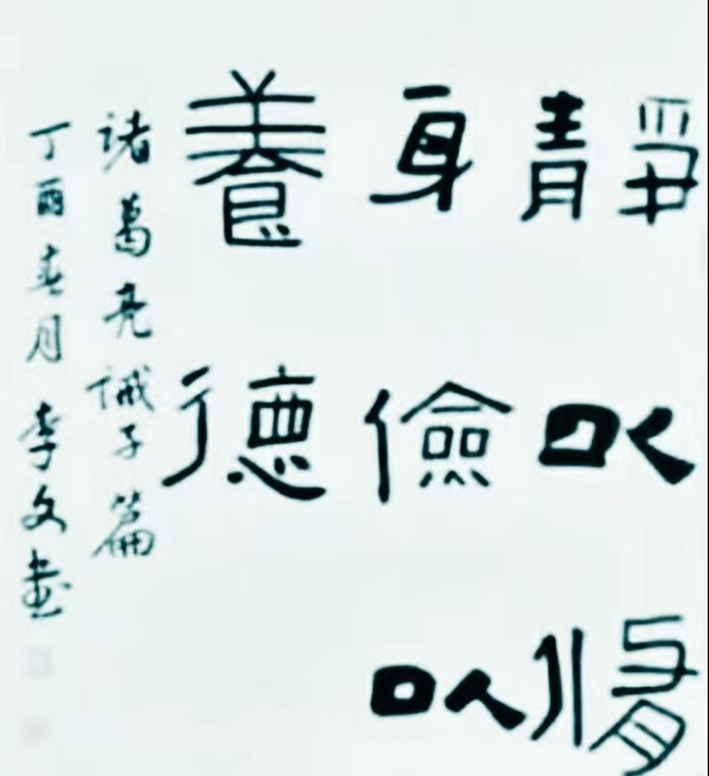 靜以脩
身儉以
養德
諸葛亮誡子篇
丁酉春月李文書